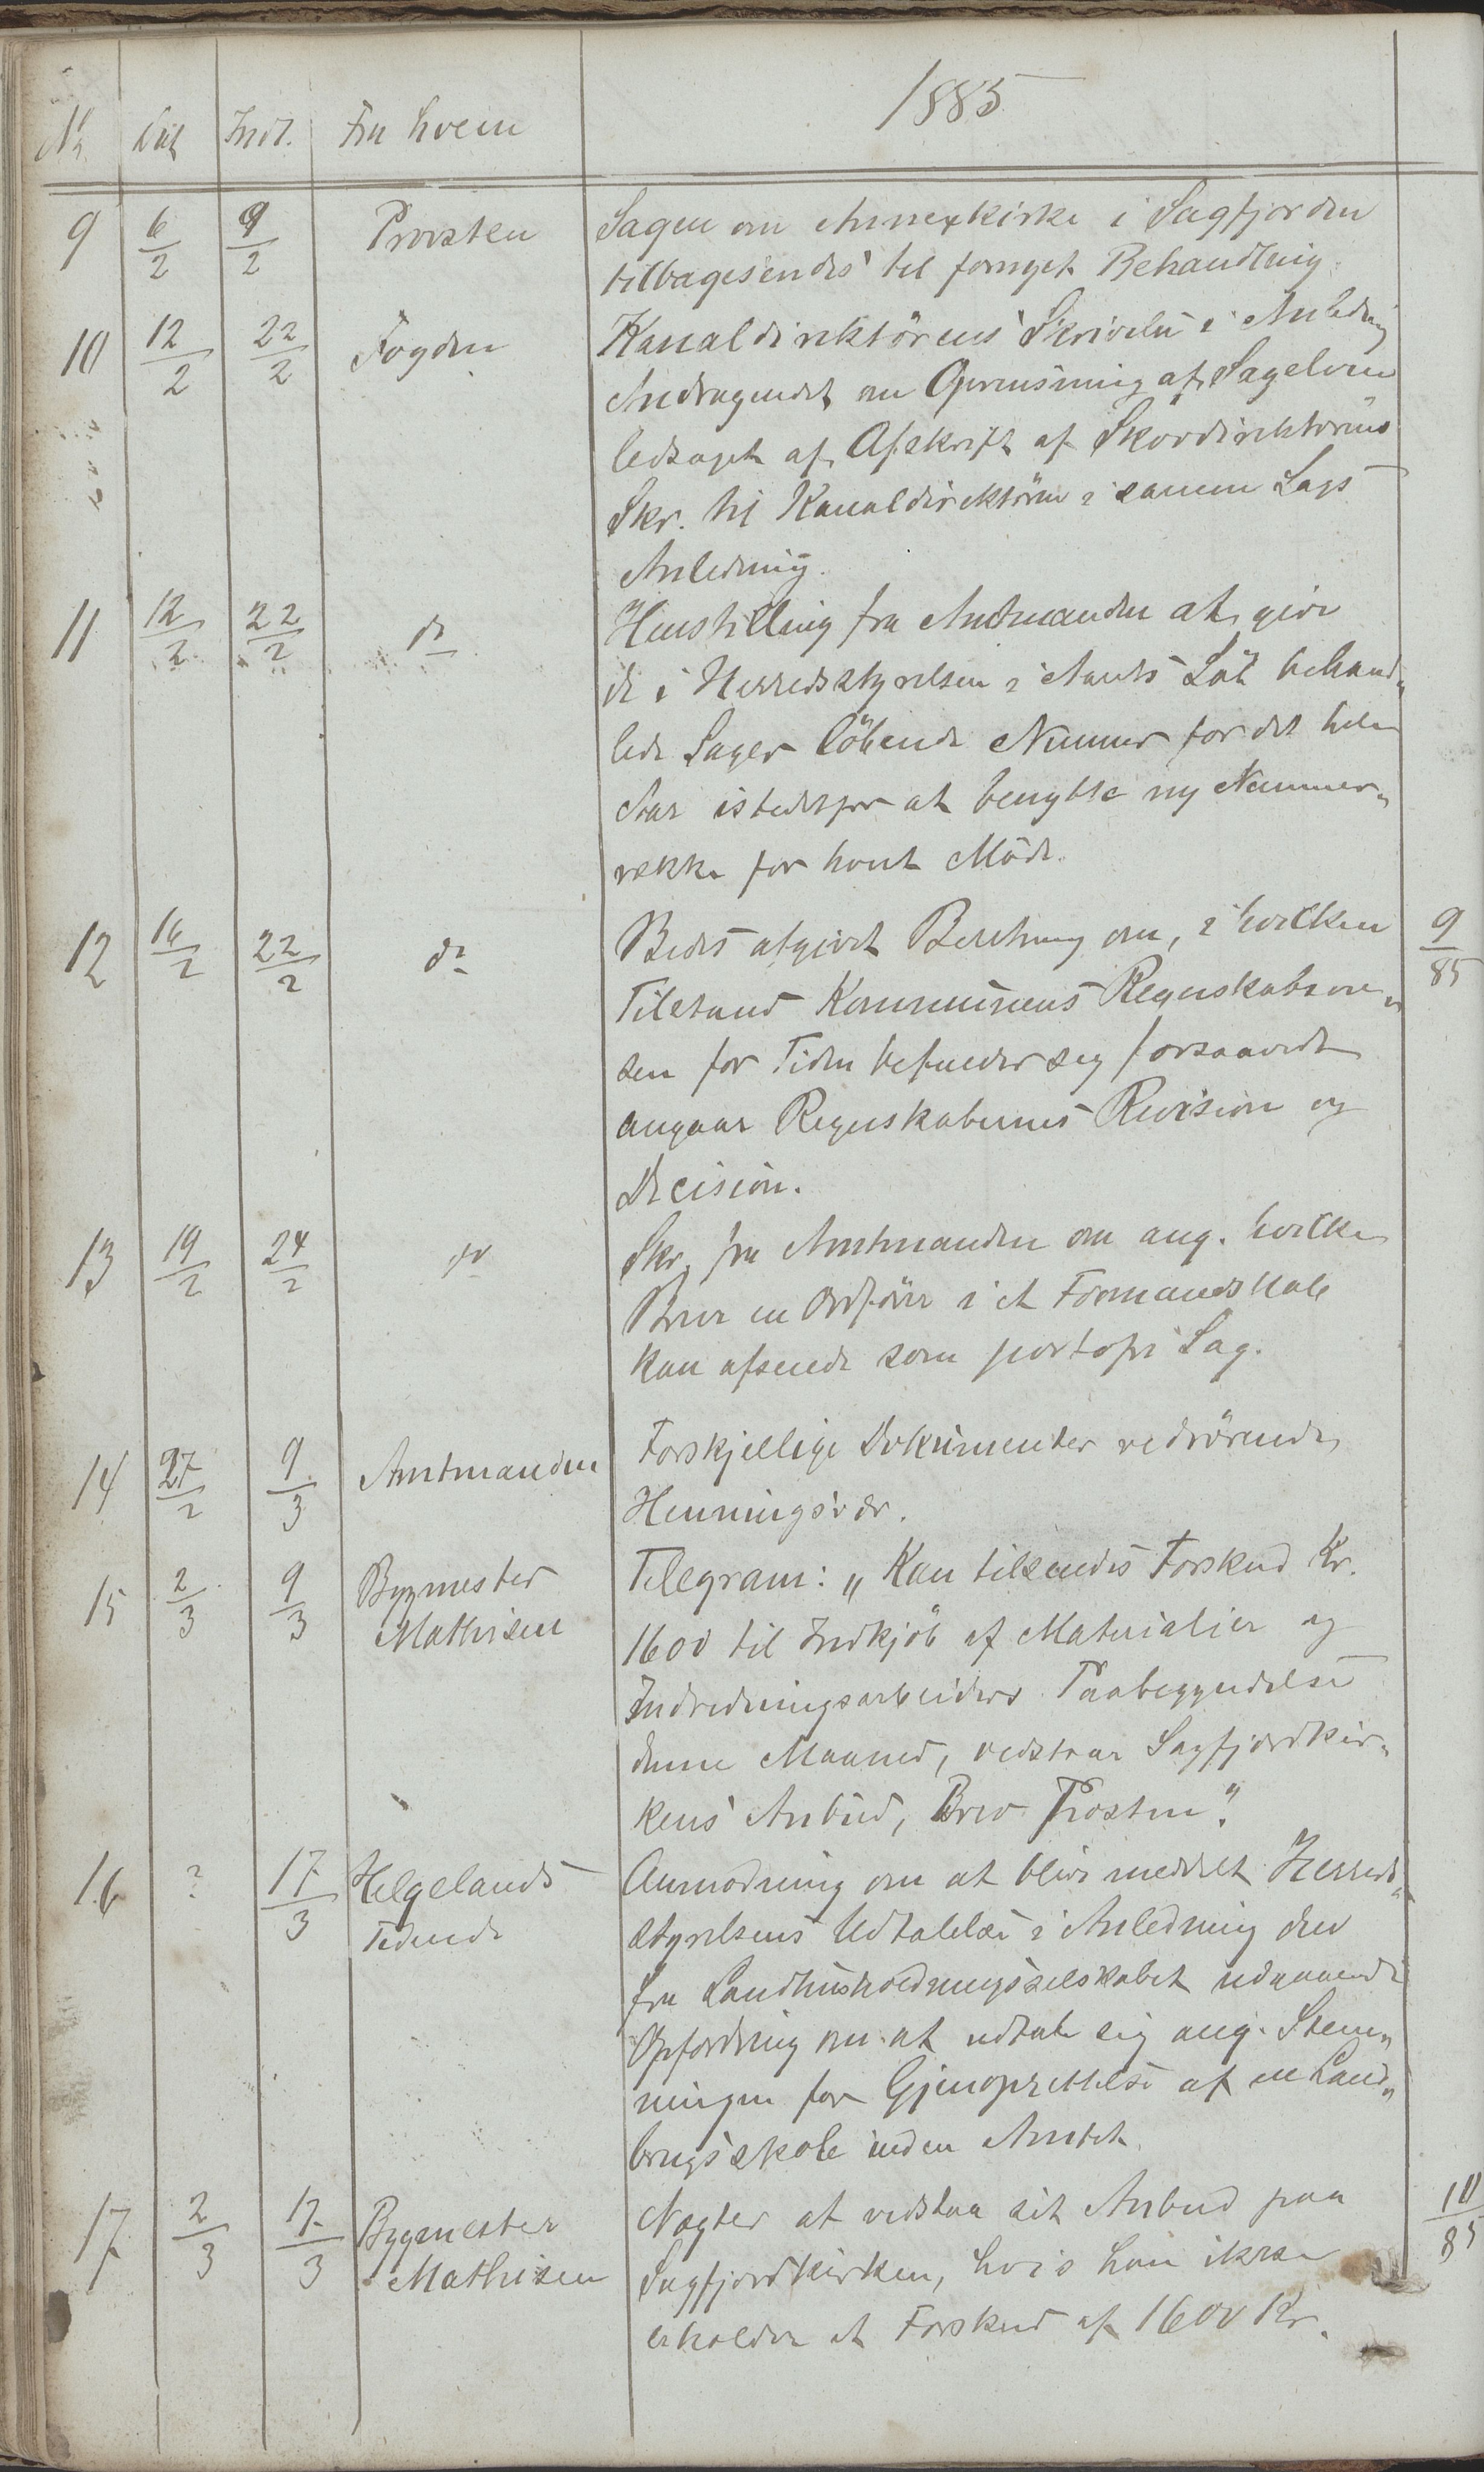 1885
No Dat Indt. Fra hvem
9 6/2 9/2 Provsten Sagen om Annexkirke i Sagfjorden
tilbagesendes til fornyet Behandling.
10 12/2 22/2 Fogden Kanaldirektörens Skrivelse i Anledning
Andragendet om Oprensning af Sagelven
ledsaget af Afskrift af Skovdirektörens
Skr. til Kanaldirektören i samme Sags
Anledning.
11 12/2 22/2 do Henstilling fra Amtmanden at give
de i Herredsstyrelsen i Aarets Löb behand„
lede Sager löbende Nummer for det hele
Aar istedetfor at benytte ny Nummer„
række for hvert Möde.
12 16/2 22/2 do Bedes afgivet Beretning om, i hvilken 9/85
Tilstand Kommunens Regnskabsvæ„
sen for Tiden befinder sig forsaavidt
angaar Regnskabernes Revision og
Decision.
13 19/2 24/2 do Skr. fra Amtmanden om ang. hvilke
Breve en Ordförer i et Formandskab
kan afsende som portofri Sag.
14 27/2 9/3 Amtmanden Forskjellige Dokumenter vedrörende
Henningsvær.
15 2/3 9/3 Bygmester Telegram: „Kan tilsendes Forskud Kr.
Mathisen 1600 til Indkjöb af Materialier og
Indredningsarbeiders Paabegyndelse
denne Maaned, vedstaar Sagfjordkir„
kens Anbud, Brev Provsten".
16 ? 17/3 Helgelands Anmodning om at blive meddelt Herreds„
Tidende styrelsens Udtalelse i Anledning den
fra Landhusholdningsselskabet udgaaende
Opfordring om at udtale sig ang. Stem„
ningen for Gjenoprettelse af en Land„
brugsskole inden Amtet.
17 2/3 17/3 Bygmester Nægter at vedstaa sit Anbud paa 10/85
Mathisen Sagfjordkirken, hvis han ikke
erholder et Forskud af 1600 Kr.